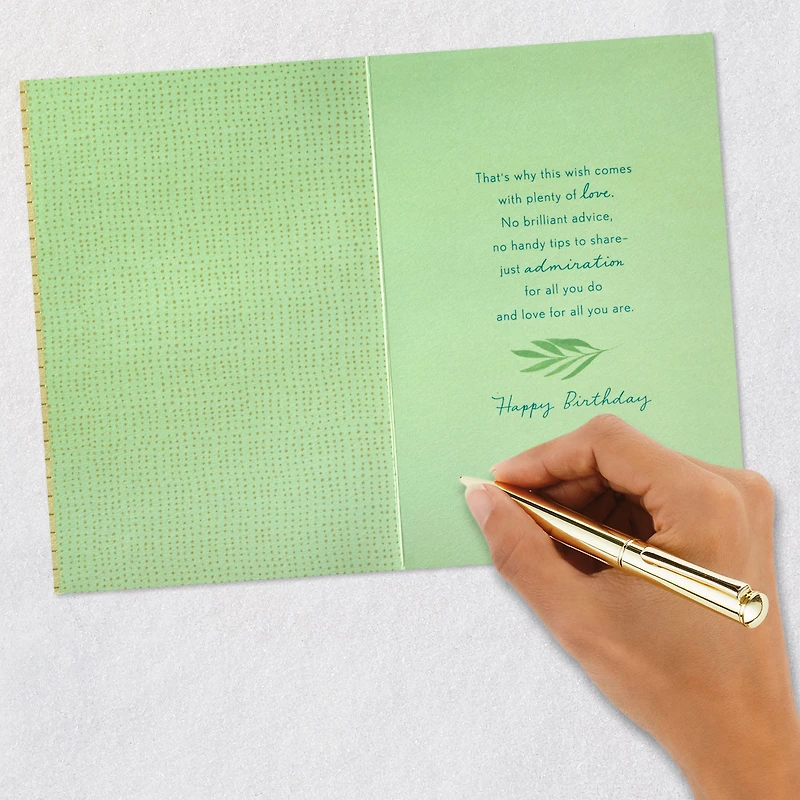 That's why this wish comes
with plenty of love.
No brilliant advice,
no handy tips to share–
just admiration
for all you do
and love for all you are.
Happy Birthday